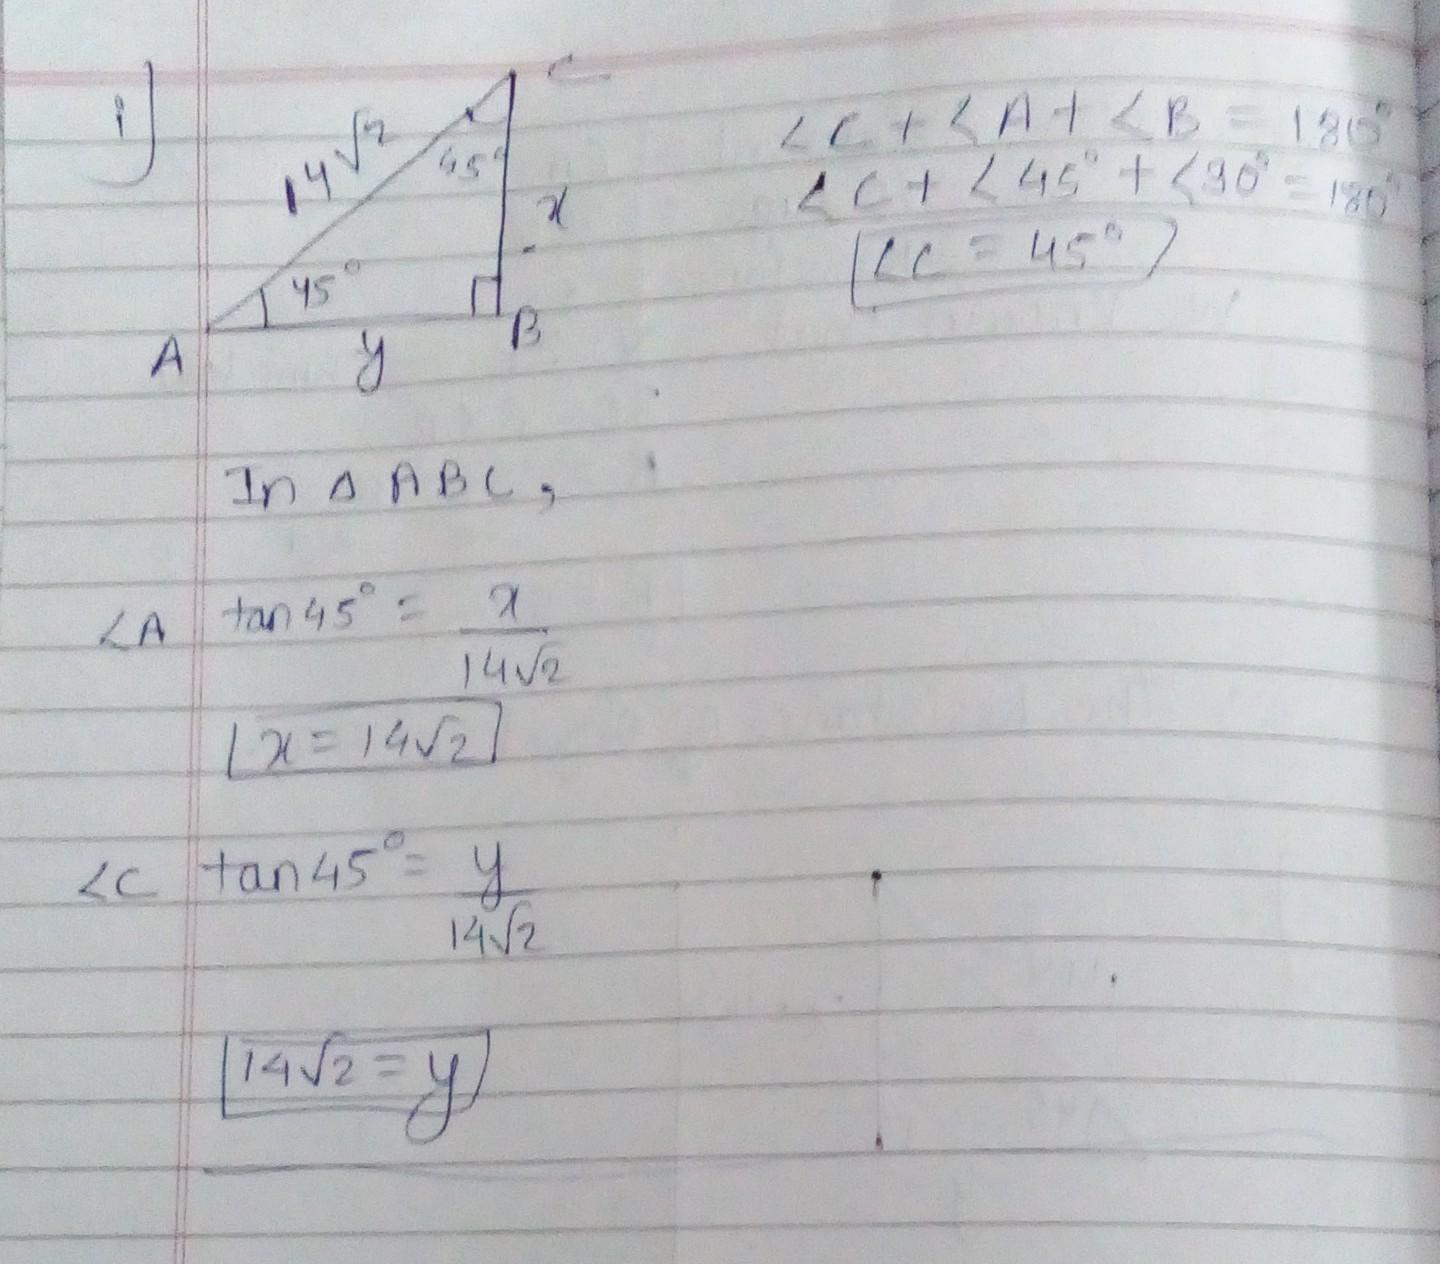 i)
C
14√2
45°
x
45°
A
y
B
∠C + ∠A + ∠B = 180°
∠C + ∠45° + ∠90° = 180°
∠C = 45°
In Δ ABC,
∠A tan45° = x/14√2
x = 14√2
∠C tan45° = y/14√2
14√2 = y